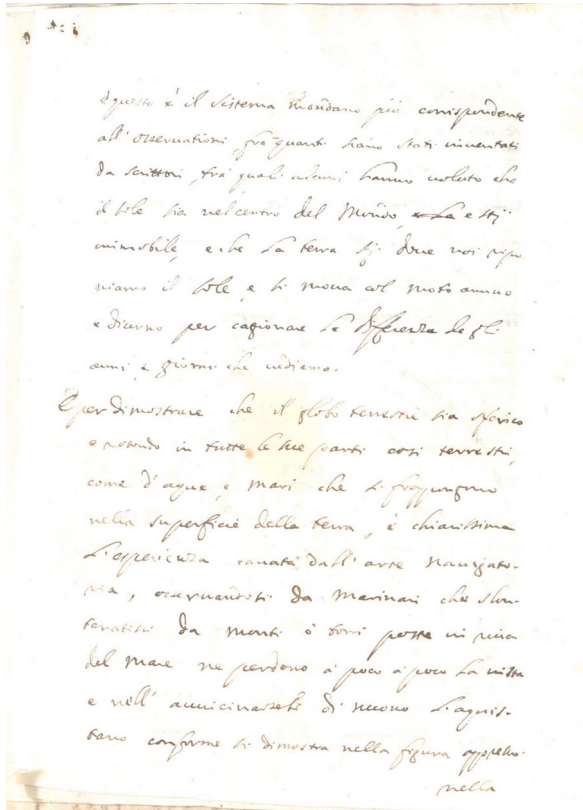 e questo è il sistema mondano più corrispondente
all'osservationi, frà quanti siano stati inventati
da scrittori, trà quali alcuni hanno voluto che
il sole sia nel centro del Mondo, e stij
immobile, e che la terra sij dove noi ripo
niamo il sole, e si mova col moto annuo
e diurno per cagionare la differenza degli
anni, e giorni che vediamo.
E per dimostrare che il globo terrestre sia sferico
e rotondo in tutte le sue parti così terrestri,
come d'aque, e mari che si frappongono
nella superficie della terra, è chiarissima
l'esperienza cavata dall'arte navigato-
ria, osservandosi da Marinari che slon-
tanatisi da monti ò torri poste in riva
del Mare ne perdono à poco à poco la vista
e nell'avvicinarseli di nuovo l'aquis-
tano conforme si dimostra nella figura appresso.
nella